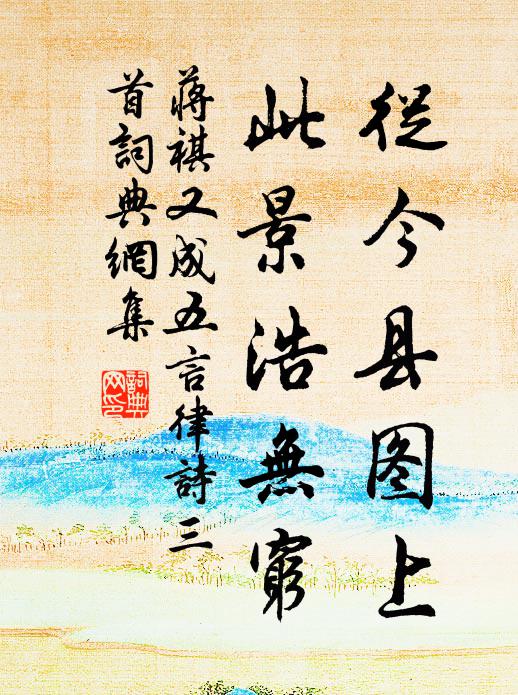 從今县图上
此景浩無窮
蔣祺又成五言律詩三
首詞典網集
詞典
网印